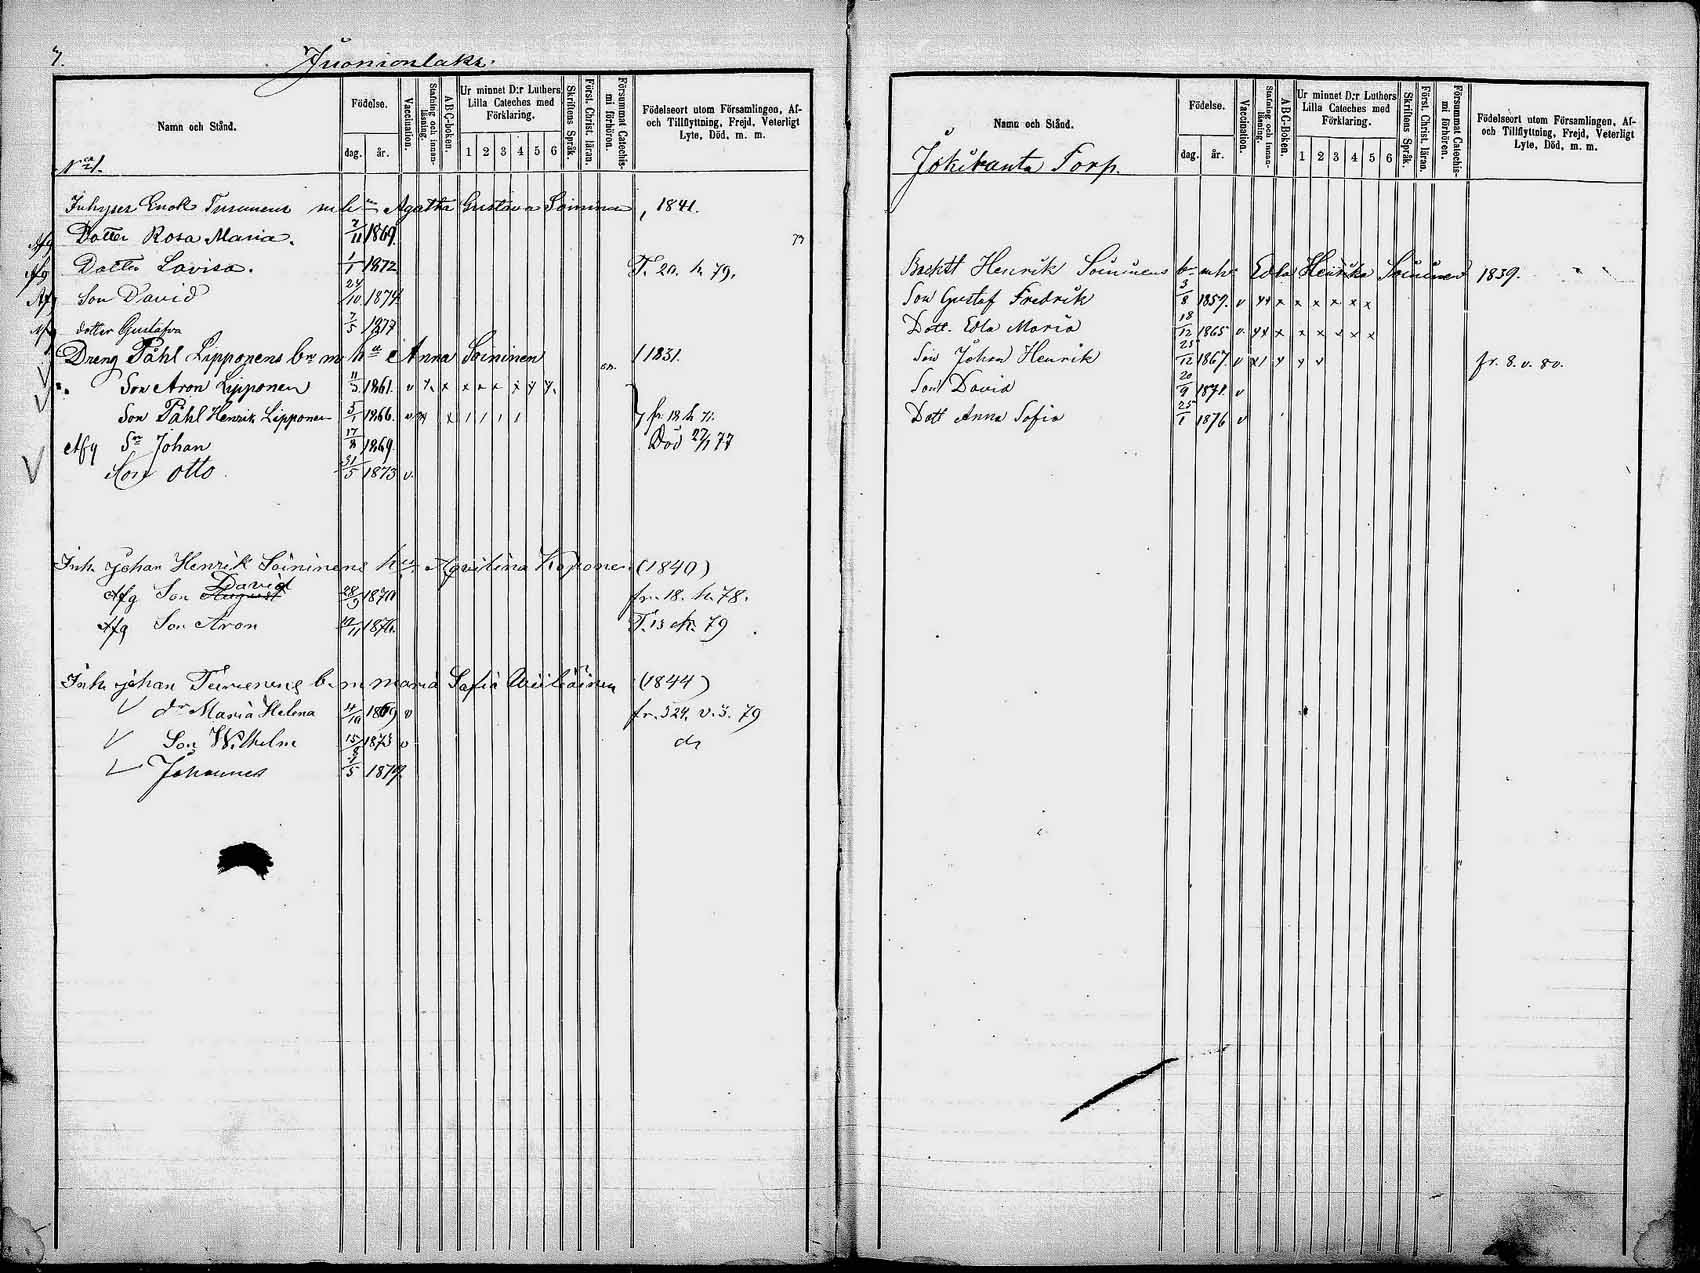 7.
Juonionlaks.
Namn och Stånd.
Födelse.
dag.
år.
Vaccination.
Stafning och innanläsning.
A B C-boken.
Ur minnet D:r Luthers Lilla Cateches med Förklaring.
1 2 3 4 5 6
Skriftens Språk.
Först. Christ. läran.
Försummat Catechismi förhören.
Födelseort utom Församlingen, Af- och Tillflyttning, Frejd, Veterligt Lyte, Död, m. m.
Inhyses Enok Turunens Agatha Gustava Soininen 1841.
Afg Dotter Rosa Maria. 2/11 1869.
Afg Dotter Lovisa. 1/1 1872 T. 20. h. 79.
Afg Son David 24/10 1874
Afg dotter Gustafva 7/5 1877
Dreng Påhl Lipponens Anna Soininen 1831.
Son Aron Lipponen 1861. v x x x x
Son Påhl Henrik Lipponen 5/1 1866. v
fr 18
Afg Sn Johan 17/8 1869. Död 27/1 77
Son Otto 31/5 1873 v.
Inh. Johan Henrik Soininens Agvilina Koponen (1840)
Afg Son August David 28/9 1870 fr. 18. h. 78.
Afg Son Aron 1876. T. 13 79
Inh. Johan Turunens Maria Sofia (1844)
dr Maria Helena 4/10 1869 v fr. 324. v. 3. 79
Son Wilhelm 15/8 1873 v
Johannes 1879.
Namn och Stånd.
Födelse.
dag.
år.
Vaccination.
Stafning och innanläsning.
A B C-Boken.
Ur minnet D:r Luthers Lilla Cateches med Förklaring.
1 2 3 4 5 6
Skriftens Språk.
Först. Christ. läran.
Försummat Catechismi förhören.
Födelseort utom Församlingen, Af- och Tillflyttning, Frejd, Veterligt Lyte, Död, m. m.
Jokiranta Torp.
Henrik Soininens Edla Henrika Soininen 1839.
Son Gustaf Fredrik 3/8 1859. v x x x x x x
Dott. Edla Maria 18/12 1865 v x x x x x x
Son Johan Henrik 25/12 1867 v fr. 8. v. 80.
Son David 20/9 1871 v
Dott Anna Sofia 25/1 1876 v